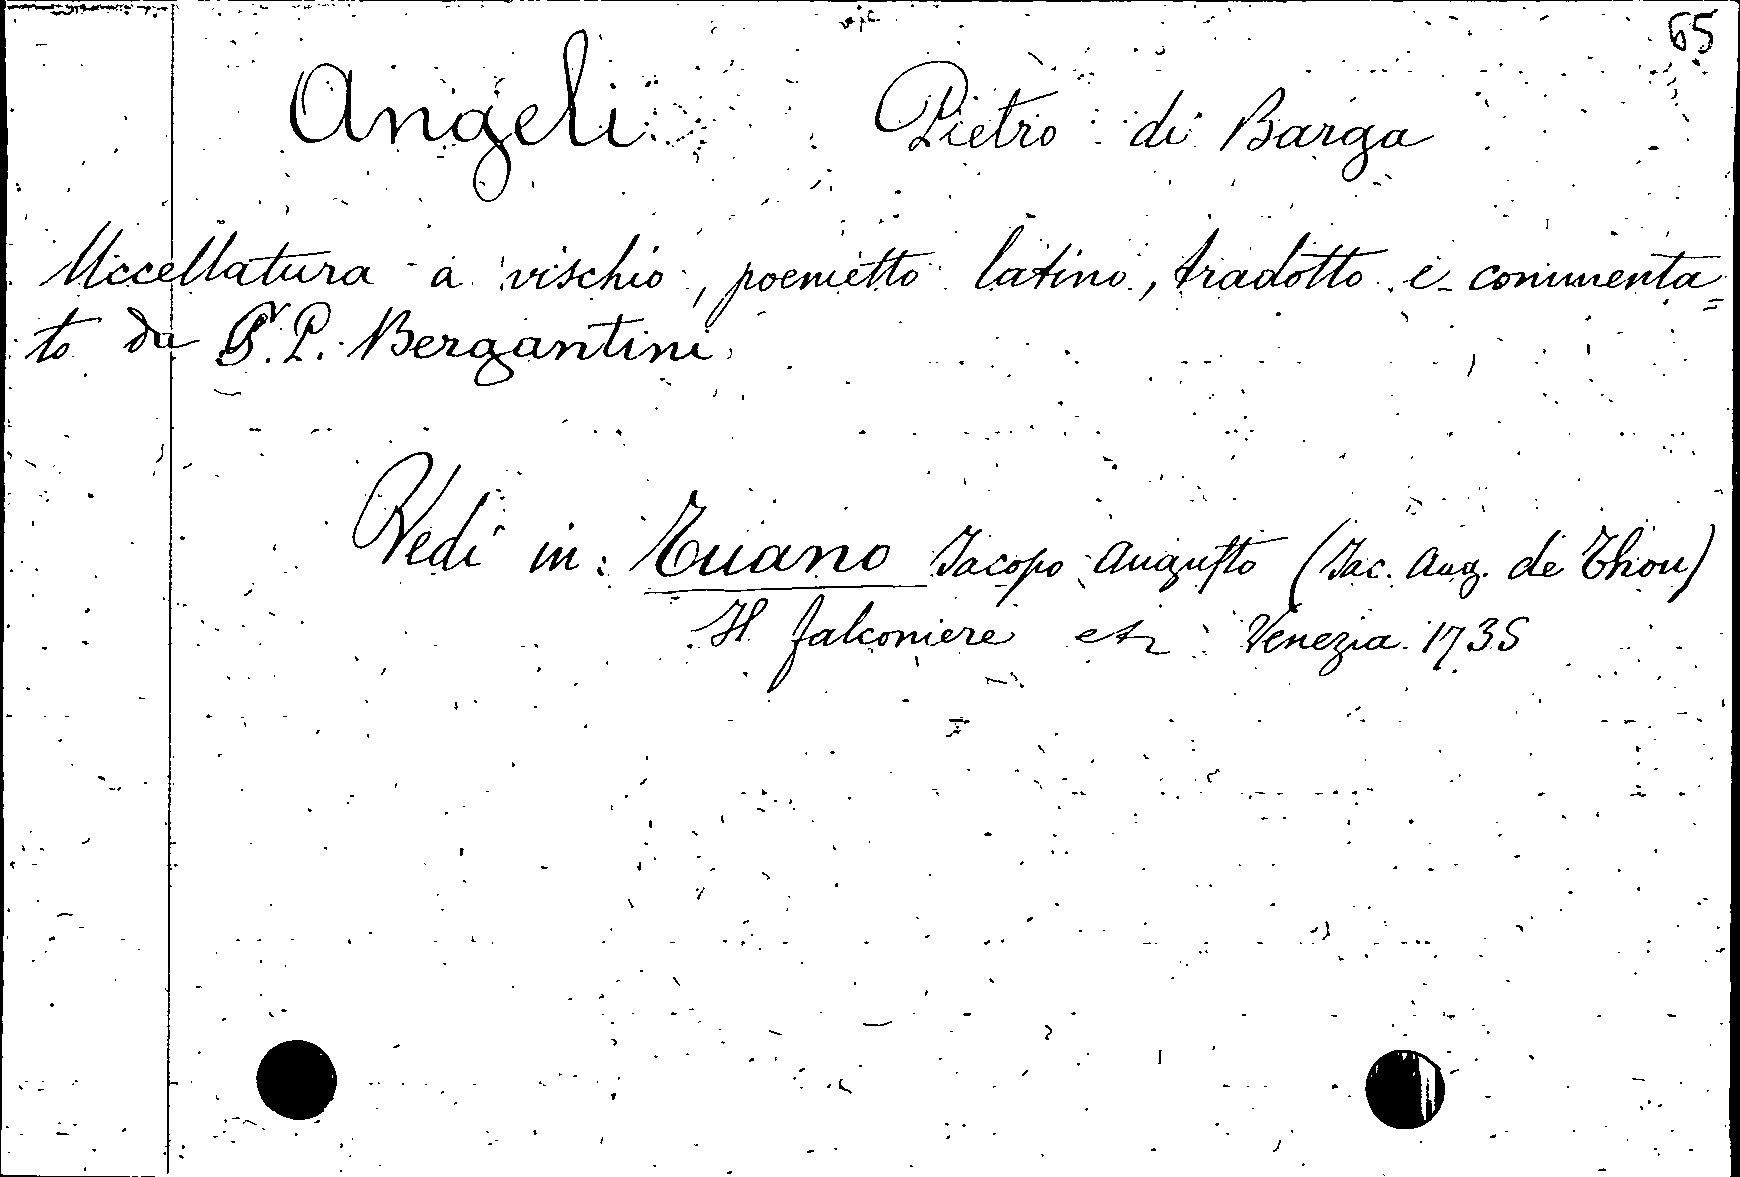 65
Angeli Pietro di Barga
Uccellatura a vischio, poemetto latino, tradotto e commenta=
to da G. P. Bergantini
Vedi in: Tuano Jacopo Augusto (Jac. Aug. de Thou)
Il falconiere etc Venezia 1735